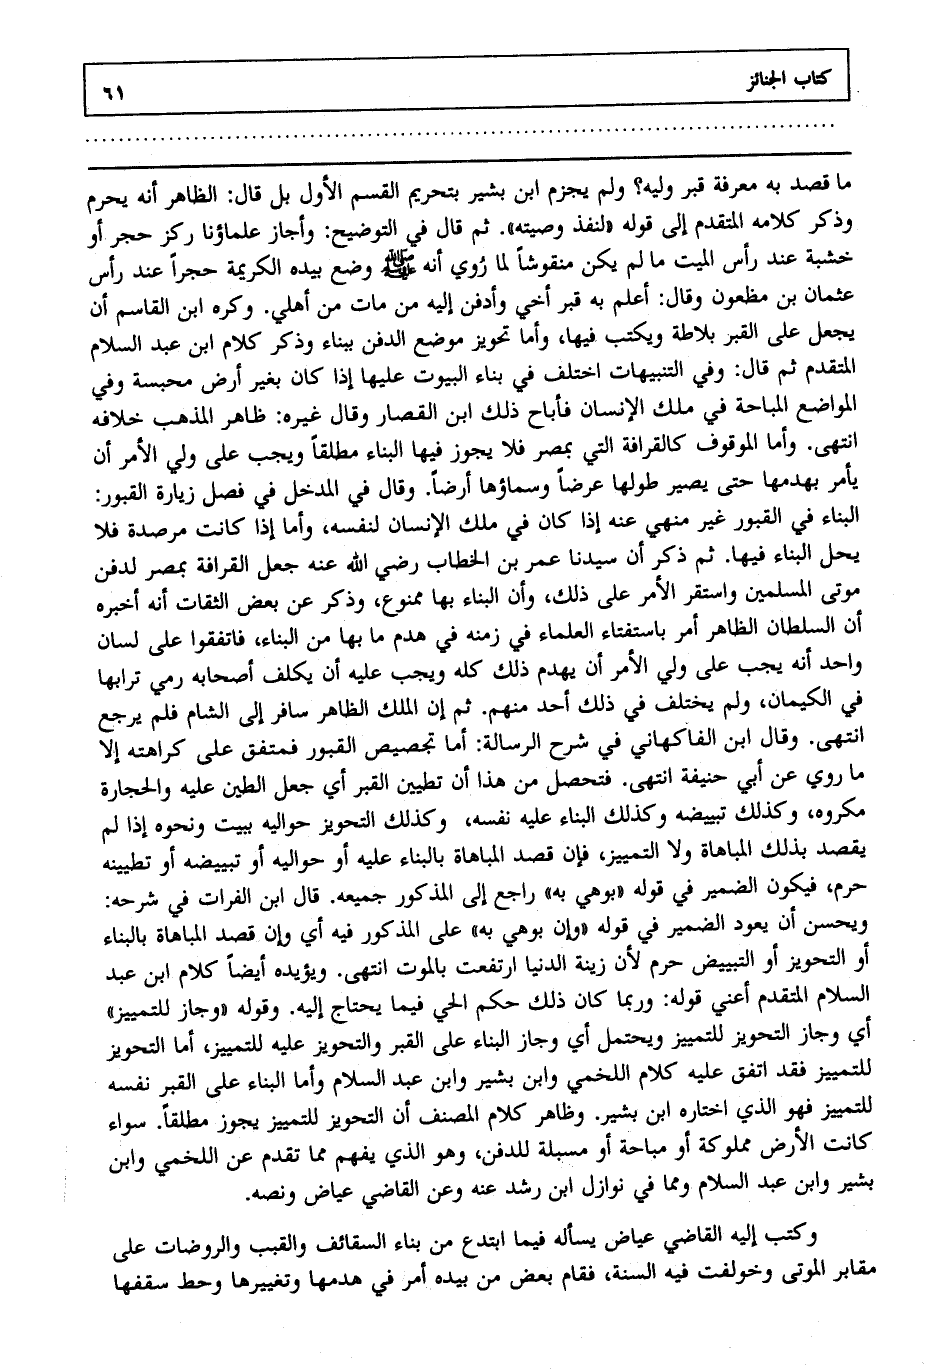 كتاب الجنائز
٦١
ما قصد به معرفة قبر وليه؟ ولم يجزم ابن بشير بتحريم القسم الأول بل قال: الظاهر أنه يحرم
وذكر كلامه المتقدم إلى قوله «لنفذ وصيته». ثم قال في التوضيح: وأجاز علماؤنا ركز حجر أو
خشبة عند رأس الميت ما لم يكن منقوشاً لما رُوي أنه ﷺ وضع بيده الكريمة حجراً عند رأس
عثمان بن مظعون وقال: أعلم به قبر أخي وأدفن إليه من مات من أهلي. وكره ابن القاسم أن
يجعل على القبر بلاطة ويكتب فيها، وأما تحويز موضع الدفن ببناء وذكر كلام ابن عبد السلام
المتقدم ثم قال: وفي التنبيهات اختلف في بناء البيوت عليها إذا كان بغير أرض محبسة وفي
المواضع المباحة في ملك الإنسان فأباح ذلك ابن القصار وقال غيره: ظاهر المذهب خلافه
انتهى. وأما الموقوف كالقرافة التي بمصر فلا يجوز فيها البناء مطلقاً ويجب على ولي الأمر أن
يأمر بهدمها حتى يصير طولها عرضاً وسماؤها أرضاً. وقال في المدخل في فصل زيارة القبور:
البناء في القبور غير منهي عنه إذا كان في ملك الإنسان لنفسه، وأما إذا كانت مرصدة فلا
يحل البناء فيها. ثم ذكر أن سيدنا عمر بن الخطاب رضي الله عنه جعل القرافة بمصر لدفن
موتى المسلمين واستقر الأمر على ذلك، وأن البناء بها ممنوع، وذكر عن بعض الثقات أنه أخبره
أن السلطان الظاهر أمر باستفتاء العلماء في زمنه في هدم ما بها من البناء، فاتفقوا على لسان
واحد أنه يجب على ولي الأمر أن يهدم ذلك كله ويجب عليه أن يكلف أصحابه رمي ترابها
في الكيمان، ولم يختلف في ذلك أحد منهم. ثم إن الملك الظاهر سافر إلى الشام فلم يرجع
انتهى. وقال ابن الفاكهاني في شرح الرسالة: أما تجصيص القبور فمتفق على كراهته إلا
ما روي عن أبي حنيفة انتهى. فتحصل من هذا أن تطيين القبر أي جعل الطين عليه والحجارة
مكروه، وكذلك تبييضه وكذلك البناء عليه نفسه، وكذلك التحويز حواليه ببيت ونحوه إذا لم
يقصد بذلك المباهاة ولا التمييز، فإن قصد المباهاة بالبناء عليه أو حواليه أو تبييضه أو تطيينه
حرم، فيكون الضمير في قوله «بوهي به» راجع إلى المذكور جميعه. قال ابن الفرات في شرحه:
ويحسن أن يعود الضمير في قوله «وإن بوهي به» على المذكور فيه أي وإن قصد المباهاة بالبناء
أو التحويز أو التبييض حرم لأن زينة الدنيا ارتفعت بالموت انتهى. ويؤيده أيضاً كلام ابن عبد
السلام المتقدم أعني قوله: وربما كان ذلك حكم الحي فيما يحتاج إليه. وقوله «وجاز للتمييز»
أي وجاز التحويز للتمييز ويحتمل أي وجاز البناء على القبر والتحويز عليه للتمييز، أما التحويز
للتمييز فقد اتفق عليه كلام اللخمي وابن بشير وابن عبد السلام وأما البناء على القبر نفسه
للتمييز فهو الذي اختاره ابن بشير. وظاهر كلام المصنف أن التحويز للتمييز يجوز مطلقاً. سواء
كانت الأرض مملوكة أو مباحة أو مسبلة للدفن، وهو الذي يفهم مما تقدم عن اللخمي وابن
بشير وابن عبد السلام ومما في نوازل ابن رشد عنه وعن القاضي عياض ونصه.
وكتب إليه القاضي عياض يسأله فيما ابتدع من بناء السقائف والقبب والروضات على
مقابر الموتى وخولفت فيه السنة، فقام بعض من بيده أمر في هدمها وتغييرها وحط سقفها